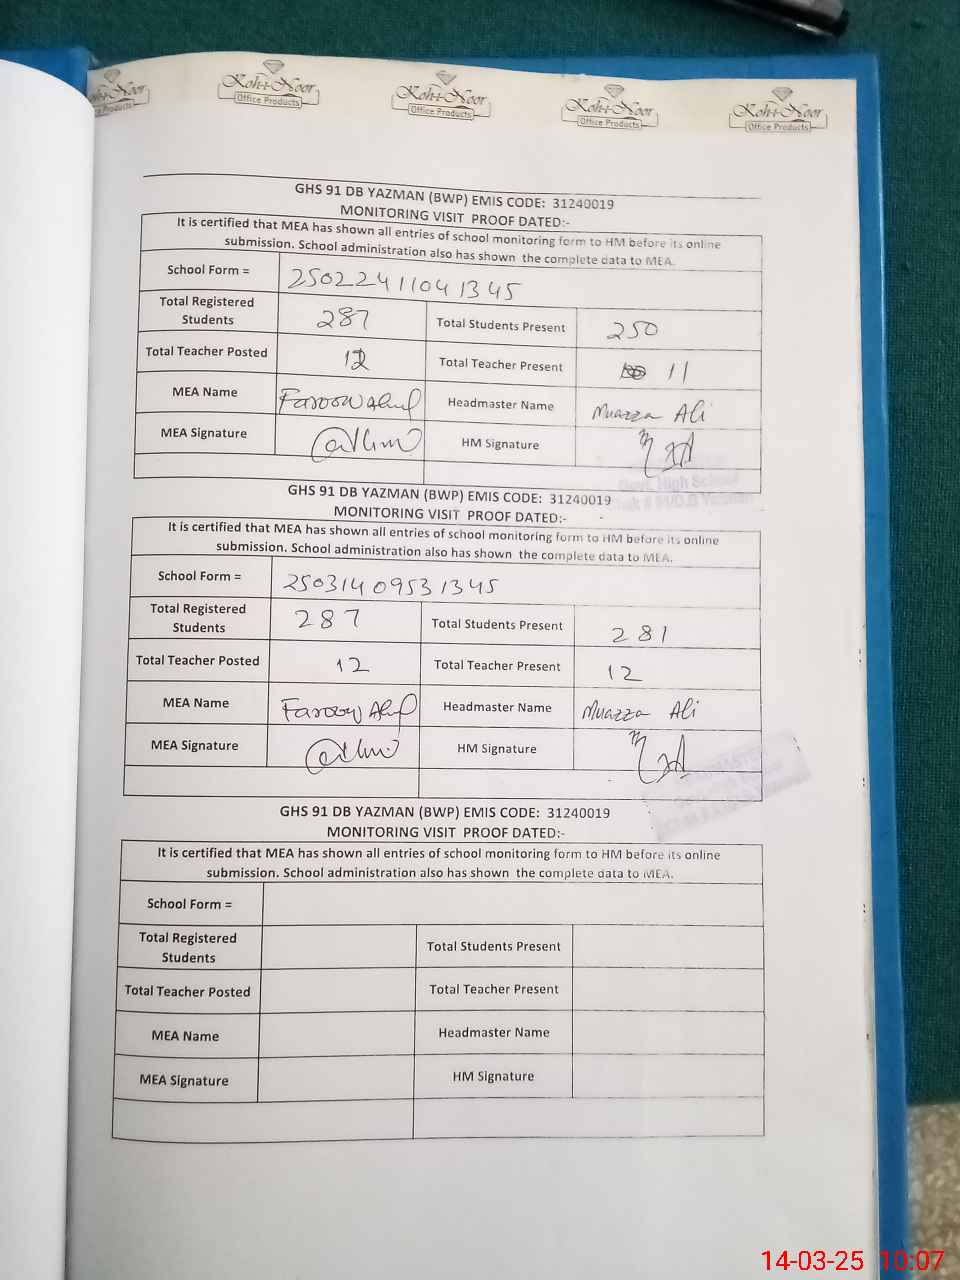 Koh-i-Noor Koh-i-Noor Koh-i-Noor Koh-i-Noor
Office Products Office Products Office Products Office Products Office Products
GHS 91 DB YAZMAN (BWP) EMIS CODE: 31240019
MONITORING VISIT PROOF DATED:-
It is certified that MEA has shown all entries of school monitoring form to HM before its online
submission. School administration also has shown the complete data to MEA.
School Form = 25022411041345
Total Registered Students 287 Total Students Present 250
Total Teacher Posted 12 Total Teacher Present 11
MEA Name Farooq Headmaster Name Muazza Ali
MEA Signature HM Signature
Govt. High School
GHS 91 DB YAZMAN (BWP) EMIS CODE: 31240019
MONITORING VISIT PROOF DATED:-
It is certified that MEA has shown all entries of school monitoring form to HM before its online
submission. School administration also has shown the complete data to MEA.
School Form = 25031409531345
Total Registered Students 287 Total Students Present 281
Total Teacher Posted 12 Total Teacher Present 12
MEA Name Farooq Headmaster Name Muazza Ali
MEA Signature HM Signature
GHS 91 DB YAZMAN (BWP) EMIS CODE: 31240019
MONITORING VISIT PROOF DATED:-
It is certified that MEA has shown all entries of school monitoring form to HM before its online
submission. School administration also has shown the complete data to MEA.
School Form =
Total Registered Students Total Students Present
Total Teacher Posted Total Teacher Present
MEA Name Headmaster Name
MEA Signature HM Signature
14-03-25 10:07